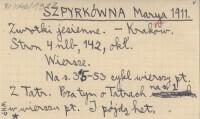 SZPYRKÓWNA Marya 1911.
Zwrotki jesienne. – Kraków.
Stron 4 nlb, 142, okł.
Wiersze.
Na s. 35-53 cykl wierszy pt.
Z Tatr. Poza tym o Tatrach na s. 1
w wierszu pt. I pójdę het.